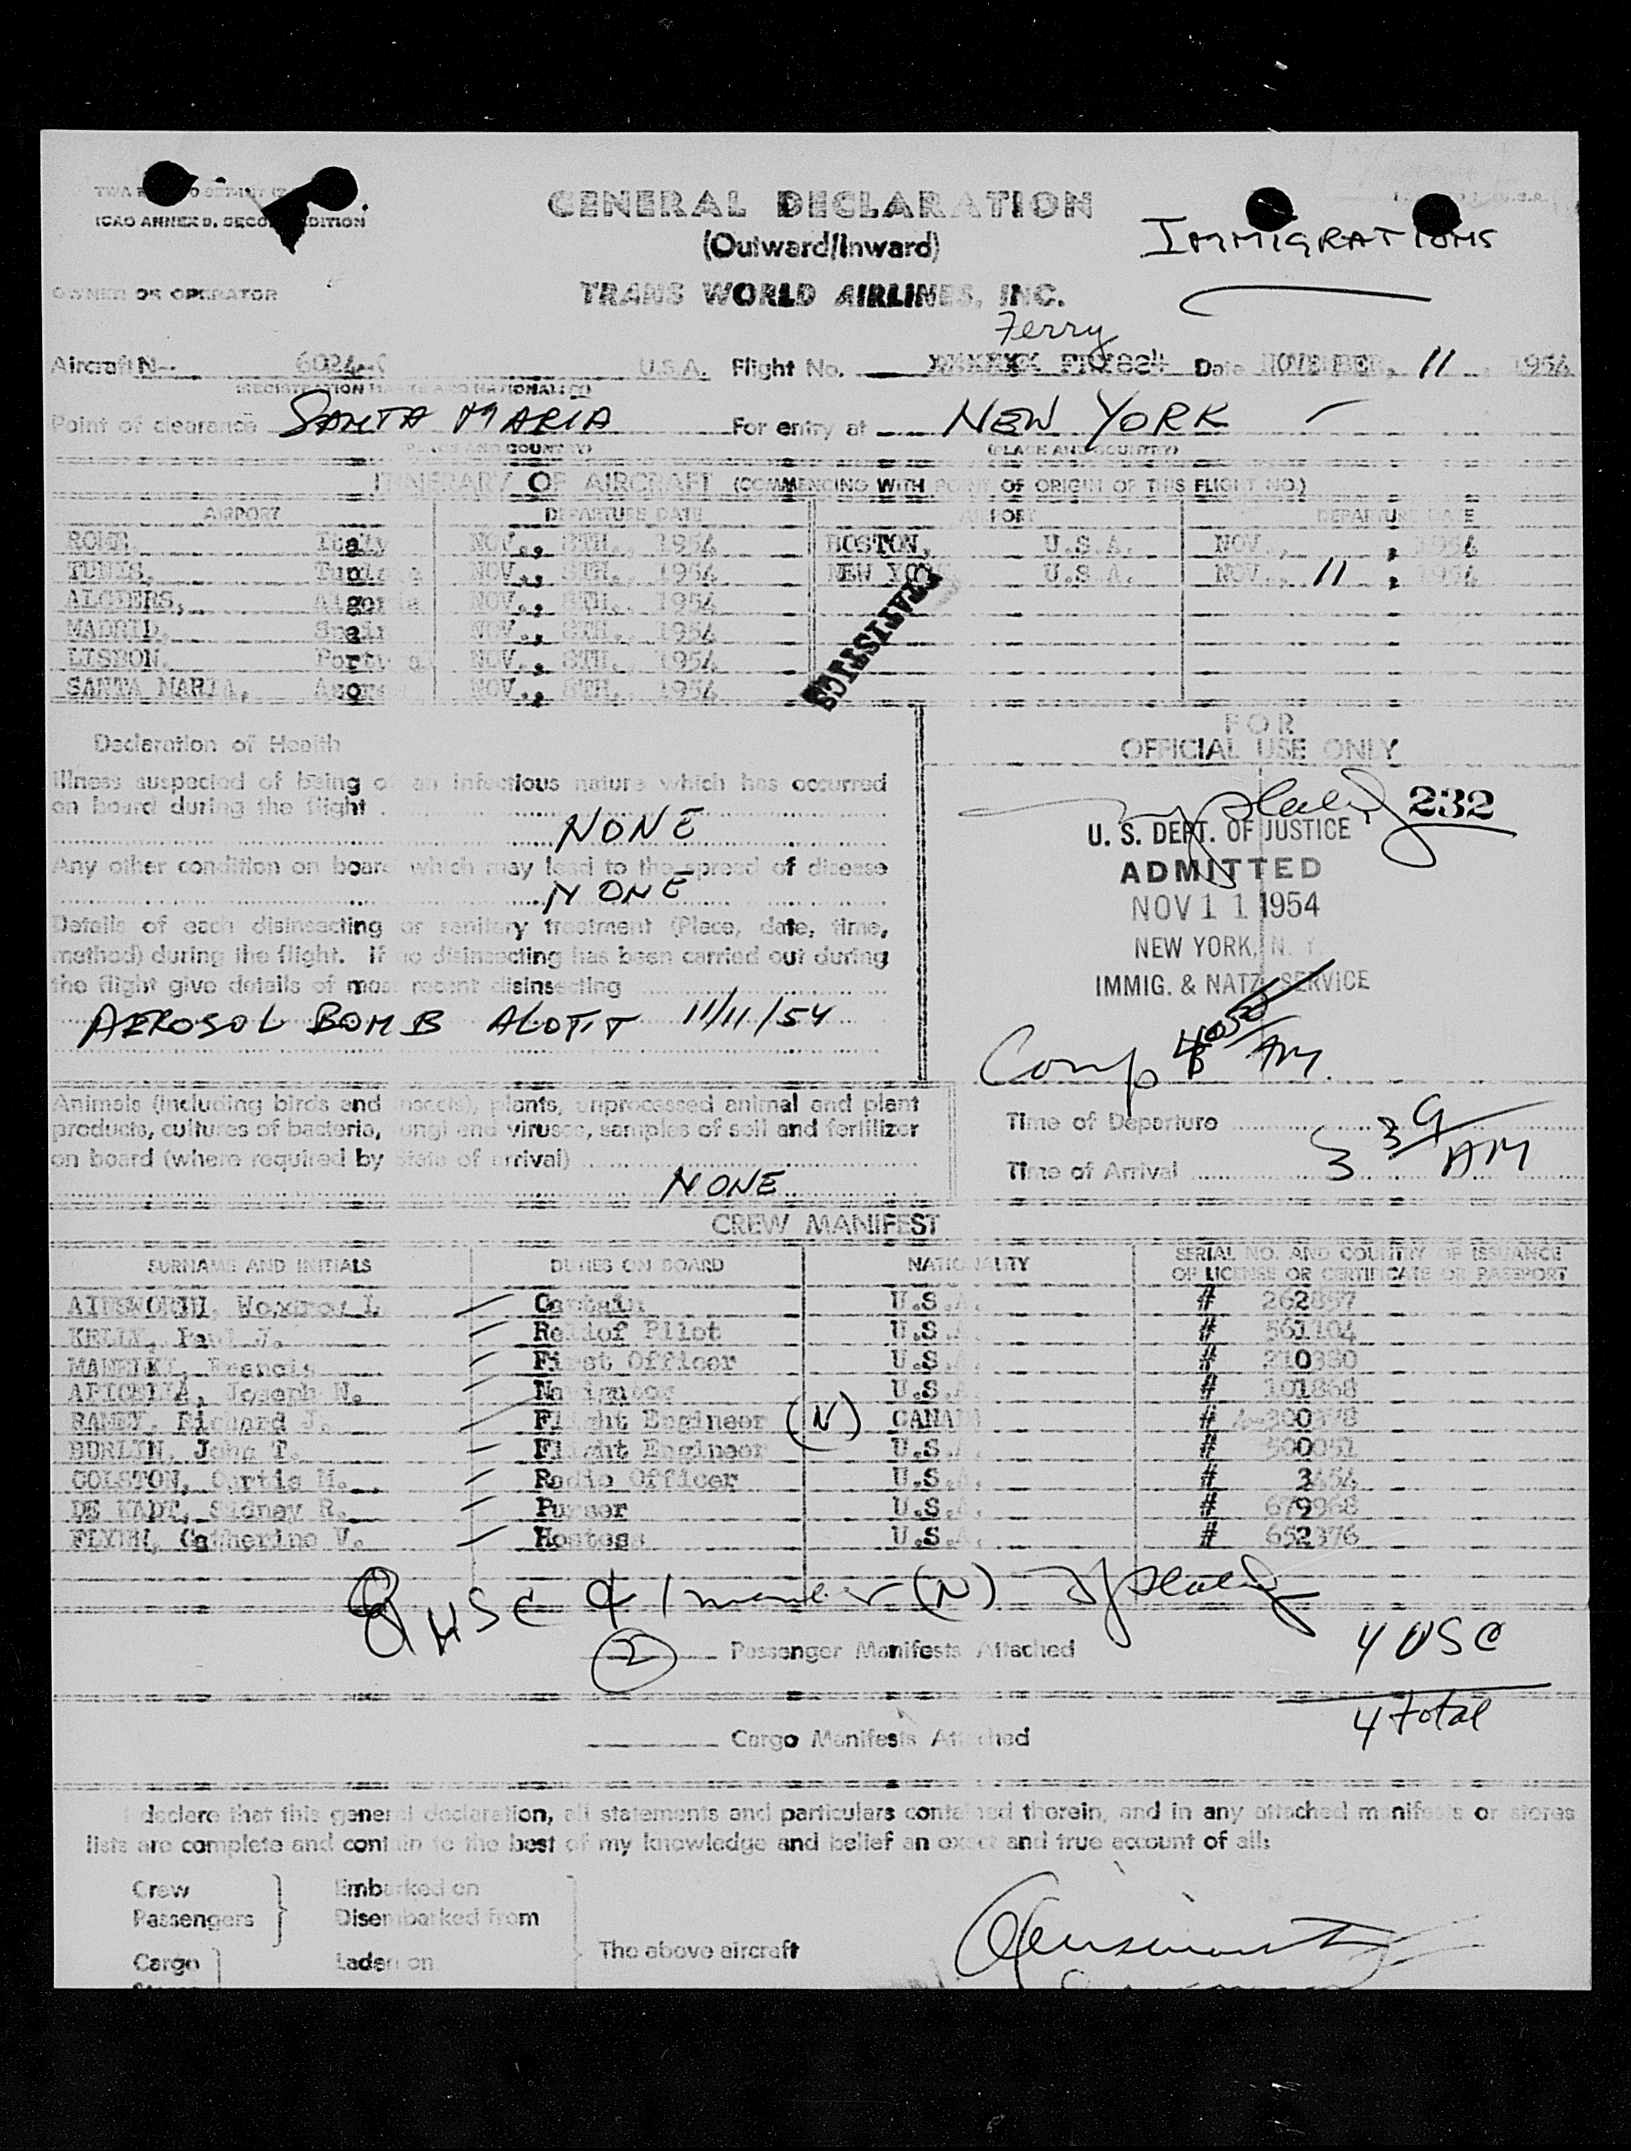 ICAO ANNEX 9, SECOND EDITION
GENERAL DECLARATION
(Outward/Inward)
IMMIGRATIONS
OWNER OR OPERATOR
TRANS WORLD AIRLINES, INC.
Ferry
Aircraft N-- 6024-C U.S.A. Flight No. Date NOVEMBER, 11 1954
(REGISTRATION MARKS AND NATIONALITY)
Point of clearance SANTA MARIA For entry at NEW YORK
(PLACE AND COUNTRY) (PLACE AND COUNTRY)
ITINERARY OF AIRCRAFT (COMMENCING WITH POINT OF ORIGIN OF THIS FLIGHT NO.)
AIRPORT DEPARTURE DATE AIRPORT DEPARTURE DATE
ROME, Italy NOV., 8TH., 1954 BOSTON, U.S.A. NOV., , 1954
TUNIS, Tunisia NOV., 8TH., 1954 NEW YORK, U.S.A. NOV., 11, 1954
ALGIERS, Algeria NOV., 8TH., 1954
MADRID, Spain NOV., 8TH., 1954
LISBON, Portugal NOV., 8TH., 1954
SANTA MARIA, Azores NOV., 8TH., 1954
STATISTICS
FOR
OFFICIAL USE ONLY
Declaration of Health
Illness suspected of being of an infectious nature which has occurred
on board during the flight
NONE
Any other condition on board which may lead to the spread of disease
NONE
Details of each disinsecting or sanitary treatment (Place, date, time,
method) during the flight. If no disinsecting has been carried out during
the flight give details of most recent disinsecting
AEROSOL BOMB 11/11/54
232
U. S. DEPT. OF JUSTICE
ADMITTED
NOV 11 1954
NEW YORK, N. Y.
IMMIG. & NATZ. SERVICE
Comp AM
Animals (including birds and insects), plants, unprocessed animal and plant
products, cultures of bacteria, fungi and viruses, samples of soil and fertilizer
on board (where required by State of arrival)
NONE
Time of Departure
Time of Arrival 3 39 AM
CREW MANIFEST
SURNAME AND INITIALS DUTIES ON BOARD NATIONALITY SERIAL NO. AND COUNTRY OF ISSUANCE
OF LICENSE OR CERTIFICATE OR PASSPORT
AINSWORTH, Captain U.S.A. # 262857
KELLY, Paul J. Relief Pilot U.S.A. # 561104
Francis First Officer U.S.A. # 210380
APICELLA, Joseph N. Navigator U.S.A. # 101868
RAMEY, Richard J. Flight Engineer (N) CANADA #
BURLIN, John T. Flight Engineer U.S.A. # 500051
COLSTON, Curtis H. Radio Officer U.S.A. # 3454
DE KADT, Sidney R. Purser U.S.A. # 679968
FLYNN, Catherine V. Hostess U.S.A. # 652376
8 USC & 1 member (N)
(2) Passenger Manifests Attached
4 USC
4 total
Cargo Manifests Attached
I declare that this general declaration, all statements and particulars contained therein, and in any attached manifests or stores
lists are complete and contain to the best of my knowledge and belief an exact and true account of all:
Crew Embarked on
Passengers Disembarked from
The above aircraft
Cargo Laden on
Ainsworth